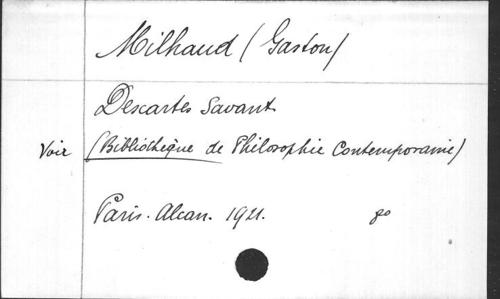 Milhaud (Gaston)
Descartes Savant
Voir (Bibliothèque de Philosophie Contemporaine)
Paris. Alcan. 1921. 8o